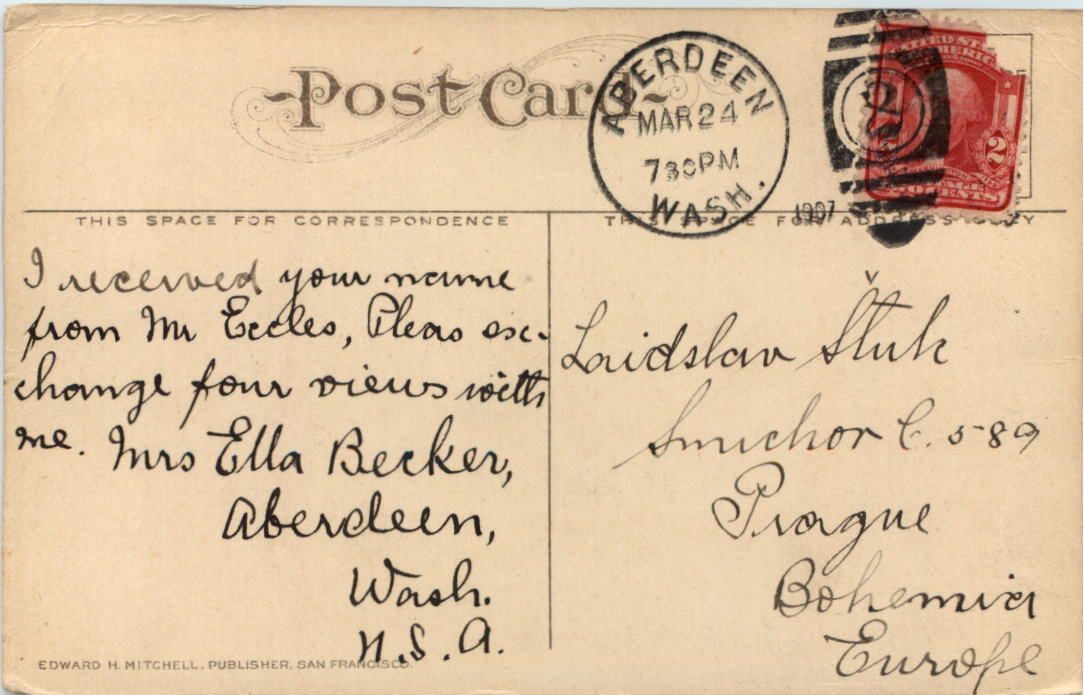 Post Card
ABERDEEN
MAR 24
7 30 PM
WASH.
1907
2
UNITED STATES
OF AMERICA
2
TWO CENTS
THIS SPACE FOR CORRESPONDENCE
THIS SPACE FOR ADDRESS ONLY
I received your name
from Mr Eccles, Pleas ex-
change four views with
me. Mrs Ella Becker,
Aberdeen,
Wash.
U.S.A.
Laidslav Štuk
Smichov C. 589
Prague
Bohemia
Europe
EDWARD H. MITCHELL, PUBLISHER, SAN FRANCISCO.